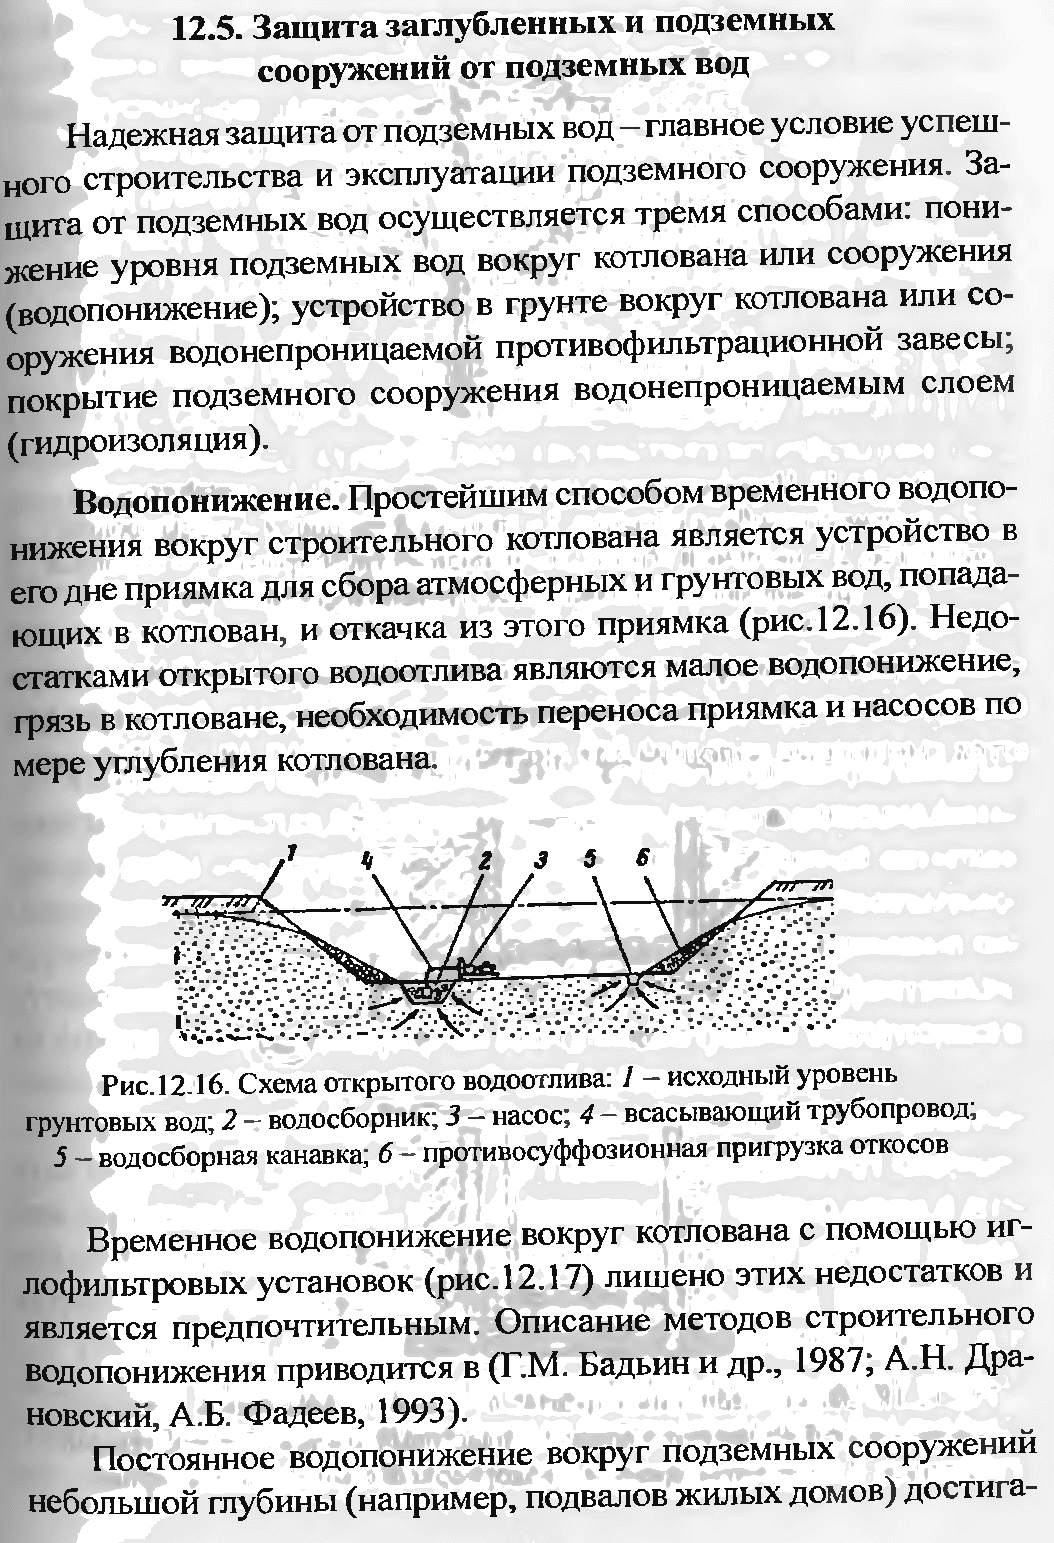 12.5. Защита заглубленных и подземных
сооружений от подземных вод
Надежная защита от подземных вод – главное условие успеш-
ного строительства и эксплуатации подземного сооружения. За-
щита от подземных вод осуществляется тремя способами: пони-
жение уровня подземных вод вокруг котлована или сооружения
(водопонижение); устройство в грунте вокруг котлована или со-
оружения водонепроницаемой противофильтрационной завесы;
покрытие подземного сооружения водонепроницаемым слоем
(гидроизоляция).
Водопонижение. Простейшим способом временного водопо-
нижения вокруг строительного котлована является устройство в
его дне приямка для сбора атмосферных и грунтовых вод, попада-
ющих в котлован, и откачка из этого приямка (рис.12.16). Недо-
статками открытого водоотлива являются малое водопонижение,
грязь в котловане, необходимость переноса приямка и насосов по
мере углубления котлована.
1 4 2 3 5 6
Рис.12.16. Схема открытого водоотлива: 1 – исходный уровень
грунтовых вод; 2 – водосборник; 3 – насос; 4 – всасывающий трубопровод;
5 – водосборная канавка; 6 – противосуффозионная пригрузка откосов
Временное водопонижение вокруг котлована с помощью иг-
лофильтровых установок (рис.12.17) лишено этих недостатков и
является предпочтительным. Описание методов строительного
водопонижения приводится в (Г.М. Бадьин и др., 1987; А.Н. Дра-
новский, А.Б. Фадеев, 1993).
Постоянное водопонижение вокруг подземных сооружений
небольшой глубины (например, подвалов жилых домов) достига-